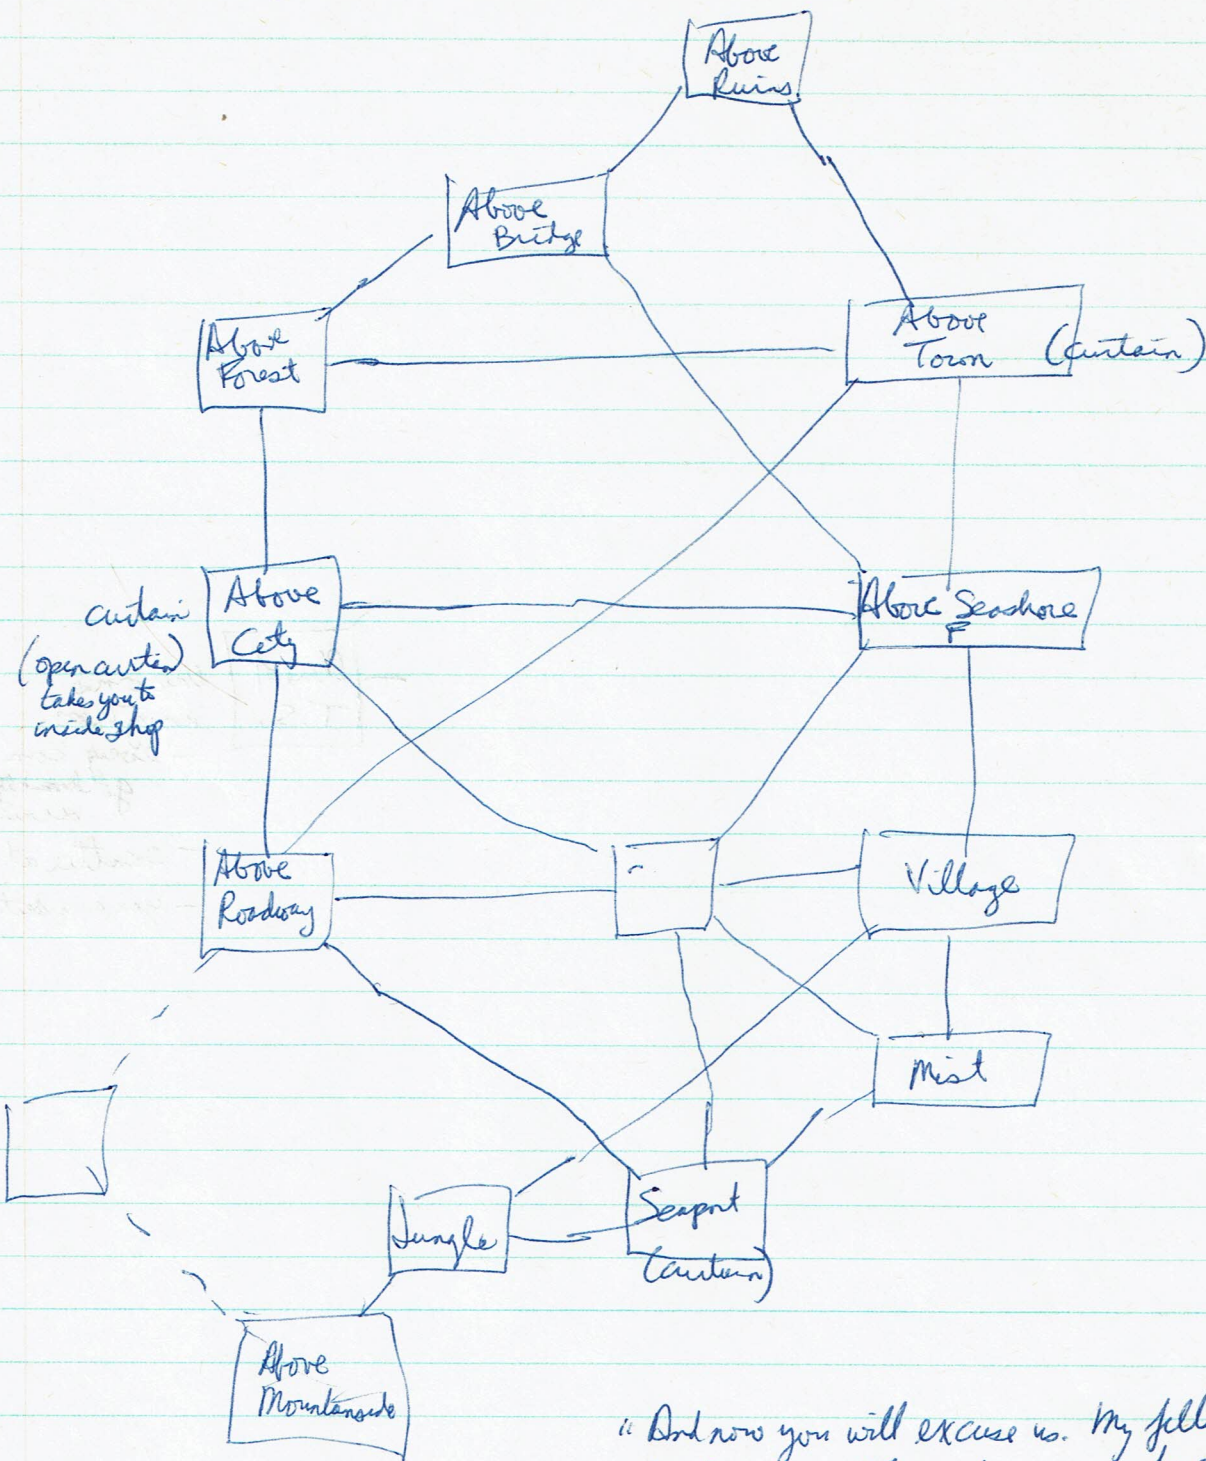 Above
Ruins
Above
Bridge
Above
Forest
Above
Town
(curtain)
Above
City
curtain
(open curtain)
takes you to
inside shop
Above Seashore
F
Above
Roadway
Village
Mist
Jungle
Seaport
(curtain)
Above
Mountainside
"And now you will excuse us. My fell